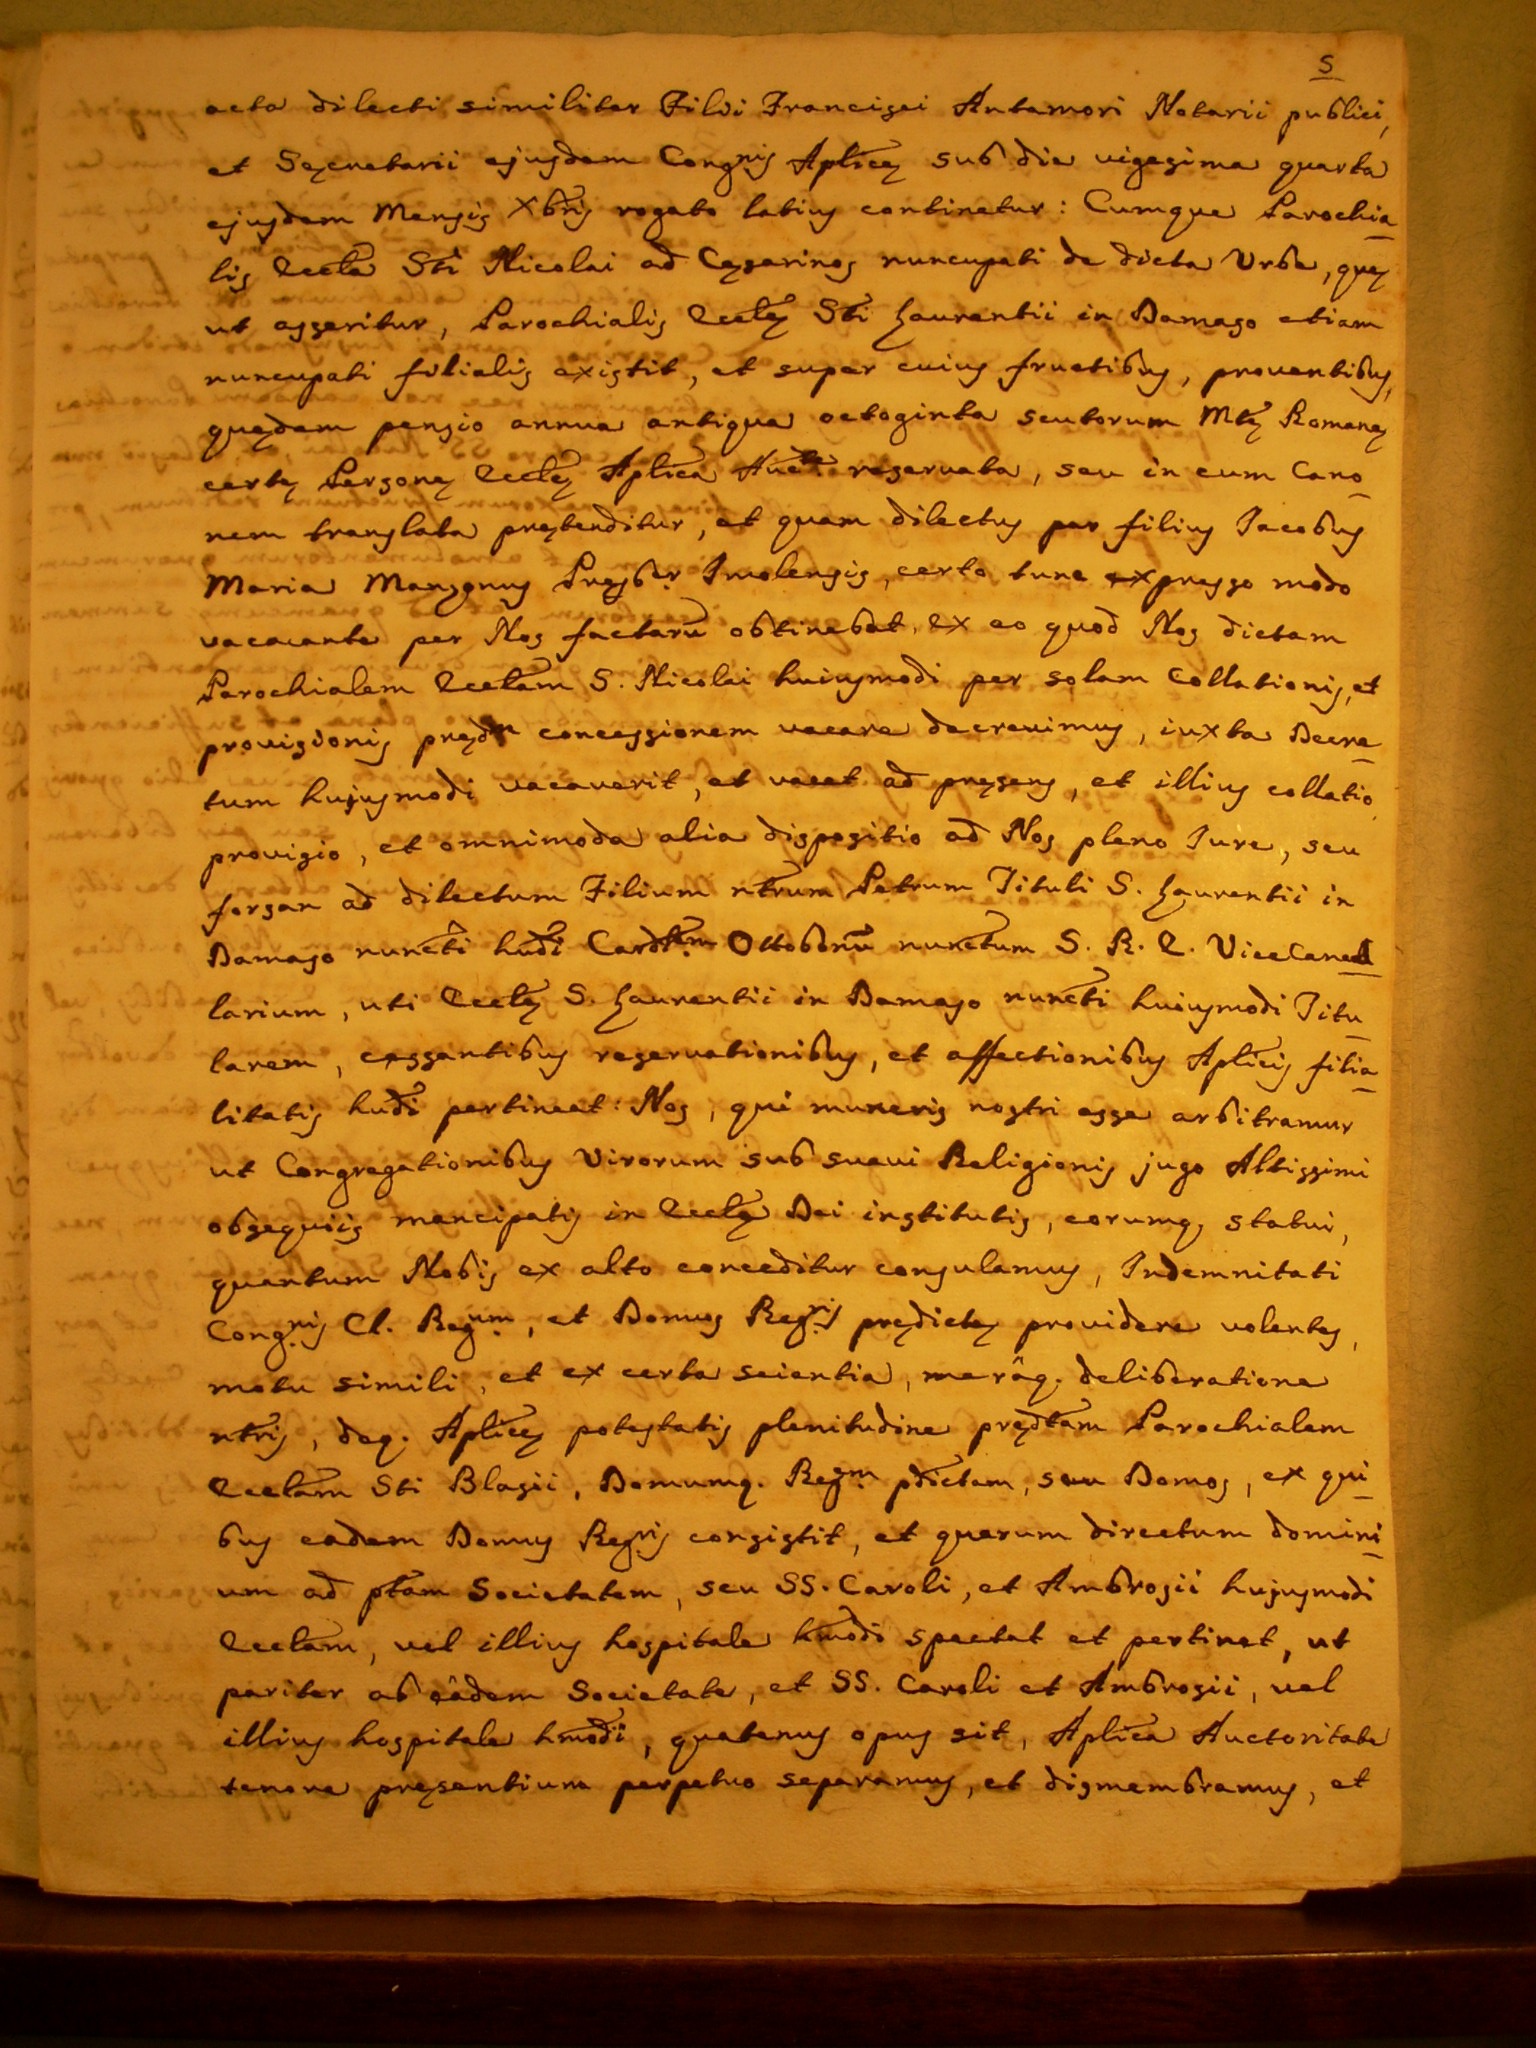 5
acta dilecti similiter Filii Francisci Antamori Notarii publici,
et Secretarii ejusdem Congnis Aplicę sub die vigesima quarta
ejusdem Mensis Xbris rogato latius continetur: Cumque Parochia
lis Eccla Sti Nicolai ad Cęsarinos nuncupati de dicta Urbe, quę
ut asseritur, Parochialis Ecclę Sti Laurentii in Damaso etiam
nuncupati filialis existit, et super cuius fructibus, proventibus,
quędam pensio annua antiqua octoginta scutorum Mtę Romanę
certę Personę Ecclę Aplica Aucte reservata, seu in eum Cano
nem translata prętenditur, et quam dilectus par filius Jacobus
Maria Manzonus Pręsber Imolensis, certo tunc expresso modo
vacavante per Nos factarū obtinebat, ex eo quod Nos dictam
Parochialem Ecclam S. Nicolai huiusmodi per solam Collationis, et
provisionis prędm concessionem vacare decrevimus, iuxta Decre
tum hujusmodi vacaverit, et vacet ad pręsens, et illius collatio
provisio, et omnimoda alia dispositio ad Nos pleno Jure, seu
forsan ad dilectum Filium ntrum Petrum Tituli S. Laurentii in
Damaso nuncti hudi Cardlem Ottobonū nunctum S. R. E. ViceCancel
larium, uti Ecclę S. Laurentii in Damaso nuncti huiusmodi Titu
larem, cessantibus reservationibus, et affectionibus Aplicis filia
litatis hudi pertineat: Nos, qui muneris nostri esse arbitramur
ut Congregationibus Virorum sub suavi Religionis jugo Altissimi
obsequiis mancipatis in Ecclę Dei institutis, eorumq, statui,
quantum Nobis ex alto conceditur consulamus, Indemnitati
Congnis Cl. Regum, et Domus Regris prędictę providere volentes,
motu simili, et ex certa scientia, merâq. deliberatione
ntris, deq. Aplicę potestatis plenitudine prędtam Parochialem
Ecclam Sti Blasii, Domumq. Regm pdictam, seu Domos, ex qui
bus eadem Domus Regris consistit, et quarum directum domini
um ad ptam Societatem, seu SS. Caroli, et Ambrosii hujusmodi
Ecclam, vel illius hospitale hmodi spectat et pertinet, ut
pariter ab eâdem Societate, et SS. Caroli et Ambrosii, vel
illius hospitale hmodi, quatenus opus sit, Aplica Auctoritate
tenore pręsentium perpetuo separamus, et dismembramus, et